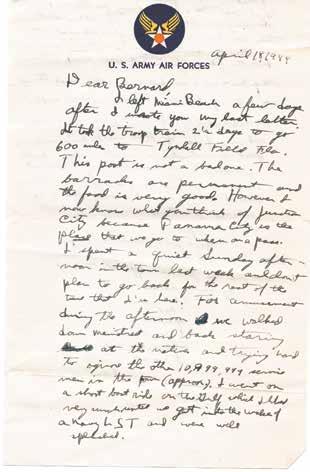 U. S. ARMY AIR FORCES
April 18, 1944
Dear Bernard,
I left Miami Beach a few days
after I wrote you my last letter.
It took the troop train 2½ days to go
600 miles to Tyndall Field Fla.
This post is not a bad one. The
barracks are permanent and
the food is very good. However I
now know what you think of Junction
City because Panama City is the
place that we go to when on a pass.
I spent a quiet Sunday after-
noon in the town last week and don't
plan to go back for the rest of the
time that I'm here. For amusement
during the afternoon we walked
down main street and back staring
at the natives and trying hard
to ignore the other 10,999,999 service
men in the town (approx). I went on
a short boat ride on the Gulf which I
very we got into the wake of
a navy LST and were well
splashed.